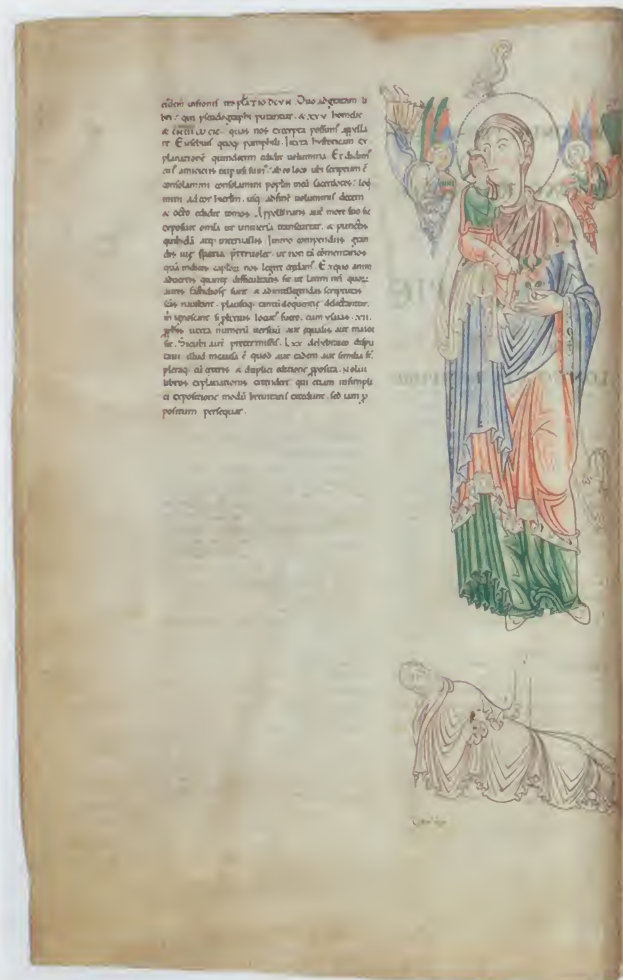 eiusdem uisionis
bri: qui pseudographi putantur. & xxv homeliae
quas nos excerpta possum appella
re Eusebius quoq; pamphili. Iuxta historicam ex
planatione quindecim edidit uolumina. Et didim'
cui' amiciciis nuper usi sum': ab eo loco ubi scriptum ē
consolamini consolamini poplm meū sacerdotes: loq
mini ad cor hierlm. usq; ad finē uoluminis decem
& octo edidit tomos. Apollinaris aut more suo sic
exposuit omīa ut uniuersa transcurrat. & punctis
quibusdā atq; interuallis. Immo compendiis gran
dis uię spatia pręteruolet. ut non tā cōmentarios
quā indices nos legere credam'. Ex quo anim
aduertis quantę difficultatis sit ut latini nri quorū
aures fastidiosę sunt & ad intellegendas scripturas
scās nauseant. plausuq; tantū eloquentię delectantur.
m ignoscant si plixius locut' fuero. cum ysaias .xii.
pphis iuxta numerū uersuū aut equalis aut maior
sit. Sicubi aut pretermissis .Lxx de hebraico dispu
taui illud in causa ē quod aut eadem aut similia st
pleraq; cū ceteris & duplici editione pposita. Nolui
libros explanationis extendere. qui etiam in simpli
ci expositione modū breuitatis excedunt. sed iam p
positum persequar.